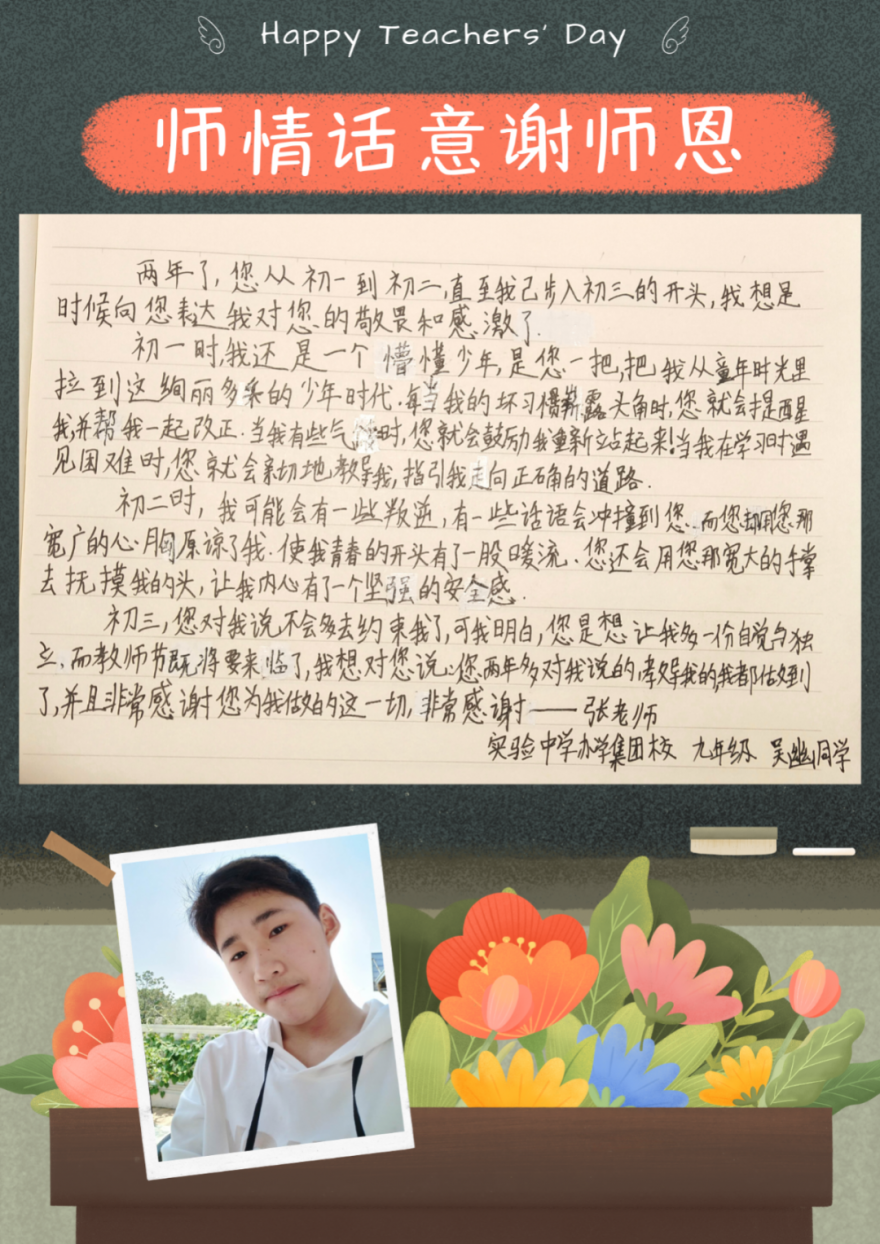 Happy Teachers' Day
师情话意谢师恩
两年了，您从初一到初二，直至我已步入初三的开头，我想是
时候向您表达我对您的敬畏和感激了.
初一时，我还是一个懵懂少年，是您一把，把我从童年时光里
拉到这绚丽多彩的少年时代.每当我的坏习惯崭露头角时，您就会提醒
我，并帮我一起改正.当我有些气馁时，您就会鼓励我重新站起来！当我在学习时遇
见困难时，您就会亲切地教导我，指引我走向正确的道路.
初二时，我可能会有一些叛逆，有一些话语会冲撞到您.而您却用您那
宽广的心胸原谅了我.使我青春的开头有了一股暖流.您还会用您那宽大的手掌
去抚摸我的头，让我内心有了一个坚强的安全感.
初三，您对我说不会多去约束我了，可我明白，您是想让我多一份自觉与独
立.而教师节既将要来临了，我想对您说：您两年多对我说的，教导我的，我都做到
了，并且非常感谢您为我做的这一切，非常感谢——张老师
实验中学办学集团本校 九年级 吴幽同学